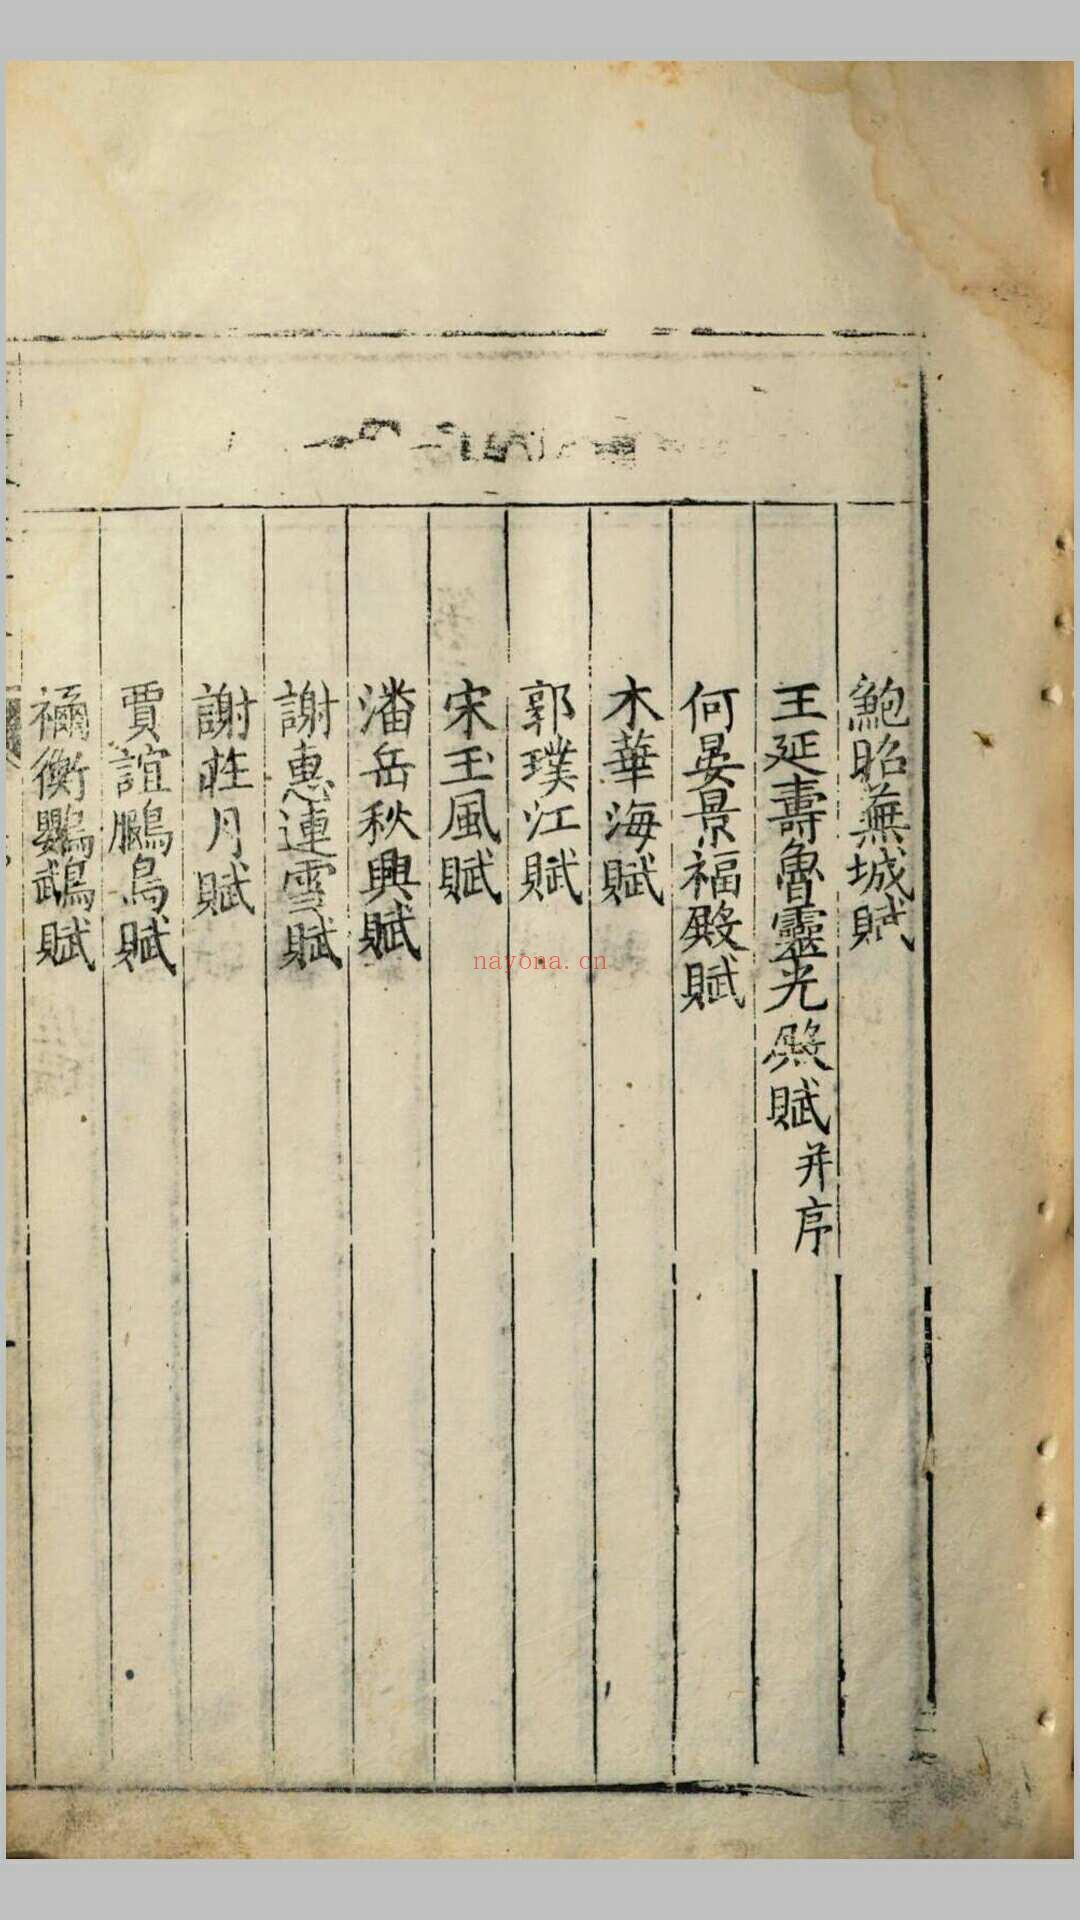 鮑昭蕪城賦
王延壽魯靈光殿賦并序
何晏景福殿賦
木華海賦
郭璞江賦
宋玉風賦
潘岳秋興賦
謝惠連雪賦
謝莊月賦
賈誼鵩鳥賦
禰衡鸚鵡賦
nayona.cn